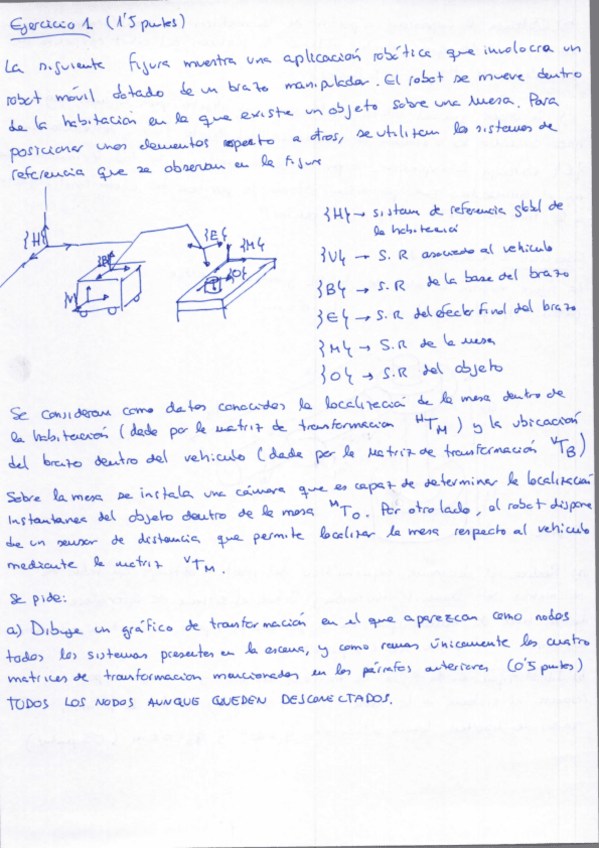 Ejercicio 1 (1'5 puntos)
La siguiente figura muestra una aplicación robótica que involucra un
robot móvil dotado de un brazo manipulador. El robot se mueve dentro
de la habitación en la que existe un objeto sobre una mesa. Para
posicionar unos elementos respecto a otros, se utilizan los sistemas de
referencia que se observan en la figura
{H}
{B}
{E}
{M}
{O}
{H} → sistema de referencia global de
la habitación
{V} → S.R asociado al vehiculo
{B} → S.R de la base del brazo
{E} → S.R del efector final del brazo
{M} → S.R de la mesa
{O} → S.R del objeto
Se consideran como datos conocidos la localización de la mesa dentro de
la habitación (dada por la matriz de transformación ᴴTM) y la ubicación
del brazo dentro del vehiculo (dada por la matriz de transformación ⱽTB)
Sobre la mesa se instala una cámara que es capaz de determinar la localización
instantanea del objeto dentro de la mesa ᴹTO. Por otro lado, el robot dispone
de un sensor de distancia que permite localizar la mesa respecto al vehiculo
mediante la matriz ⱽTM.
Se pide:
a) Dibuje un gráfico de transformación en el que aparezcan como nodos
todos los sistemas presentes en la escena, y como ramas únicamente las cuatro
matrices de transformacion mencionadas en los párrafos anteriores (0'5 puntos)
TODOS LOS NODOS AUNQUE QUEDEN DESCONECTADOS.